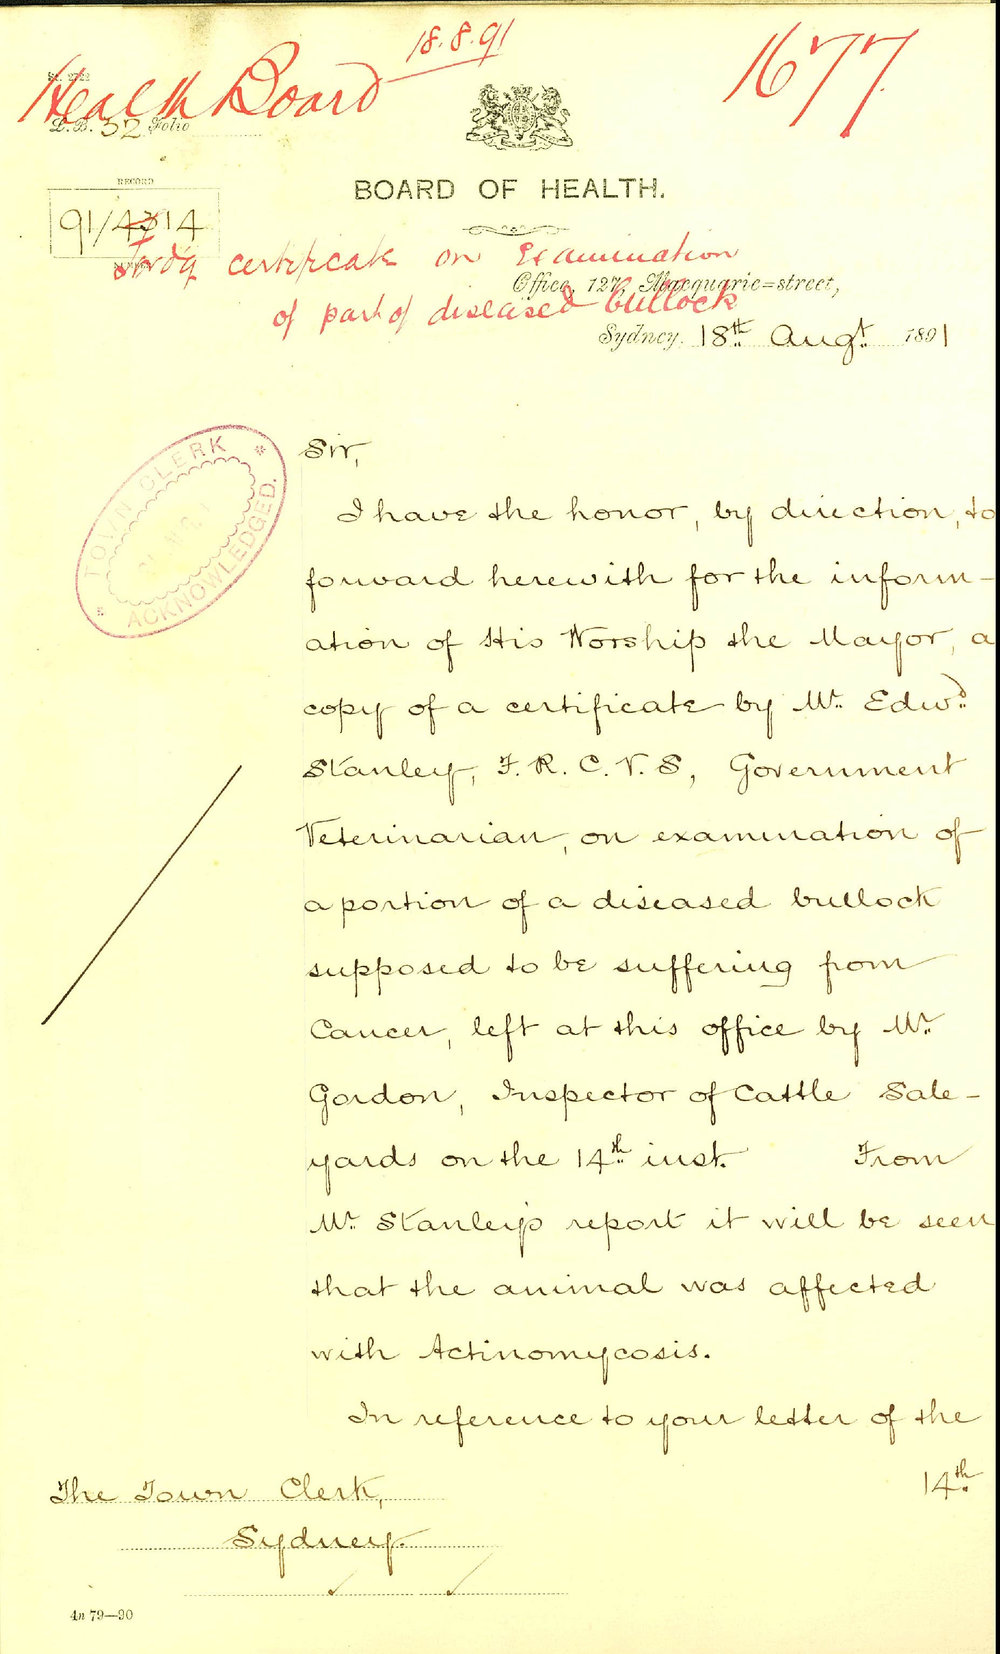 18.8.91
1677
Health Board
St. 2722
L.B. 52 Folio
BOARD OF HEALTH.
RECORD
91/4314
NUMBER
Frwdg certificate on Examination
of part of diseased bullock
Office, 127, Macquarie=street,
Sydney, 18th Augt. 1891
TOWN CLERK
ACKNOWLEDGED.
Sir,
I have the honor, by direction, to
forward herewith for the inform-
ation of His Worship the Mayor, a
copy of a certificate by Mr. Edwd.
Stanley, F.R.C.V.S, Government
Veterinarian, on examination of
a portion of a diseased bullock
supposed to be suffering from
Cancer, left at this office by Mr.
Gordon, Inspector of Cattle Sale-
yards on the 14th inst. From
Mr. Stanley's report it will be seen
that the animal was affected
with Actinomycosis.
In reference to your letter of the
14th
The Town Clerk,
Sydney.
4n 79—90